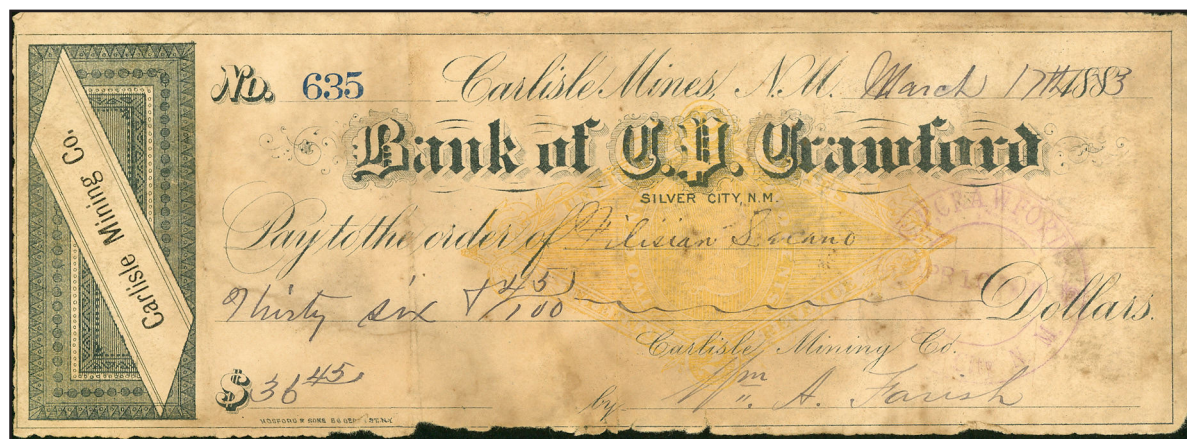 Carlisle Mining Co.
No. 635 Carlisle Mines, N.M. March 17th 1883
Bank of C.P. Crawford
SILVER CITY, N.M.
Pay to the order of Filisian
Thirty six & 45/100 Dollars.
Carlisle Mining Co.
$ 36 45
by Wm. A. Farish
CRAWFORD
N M